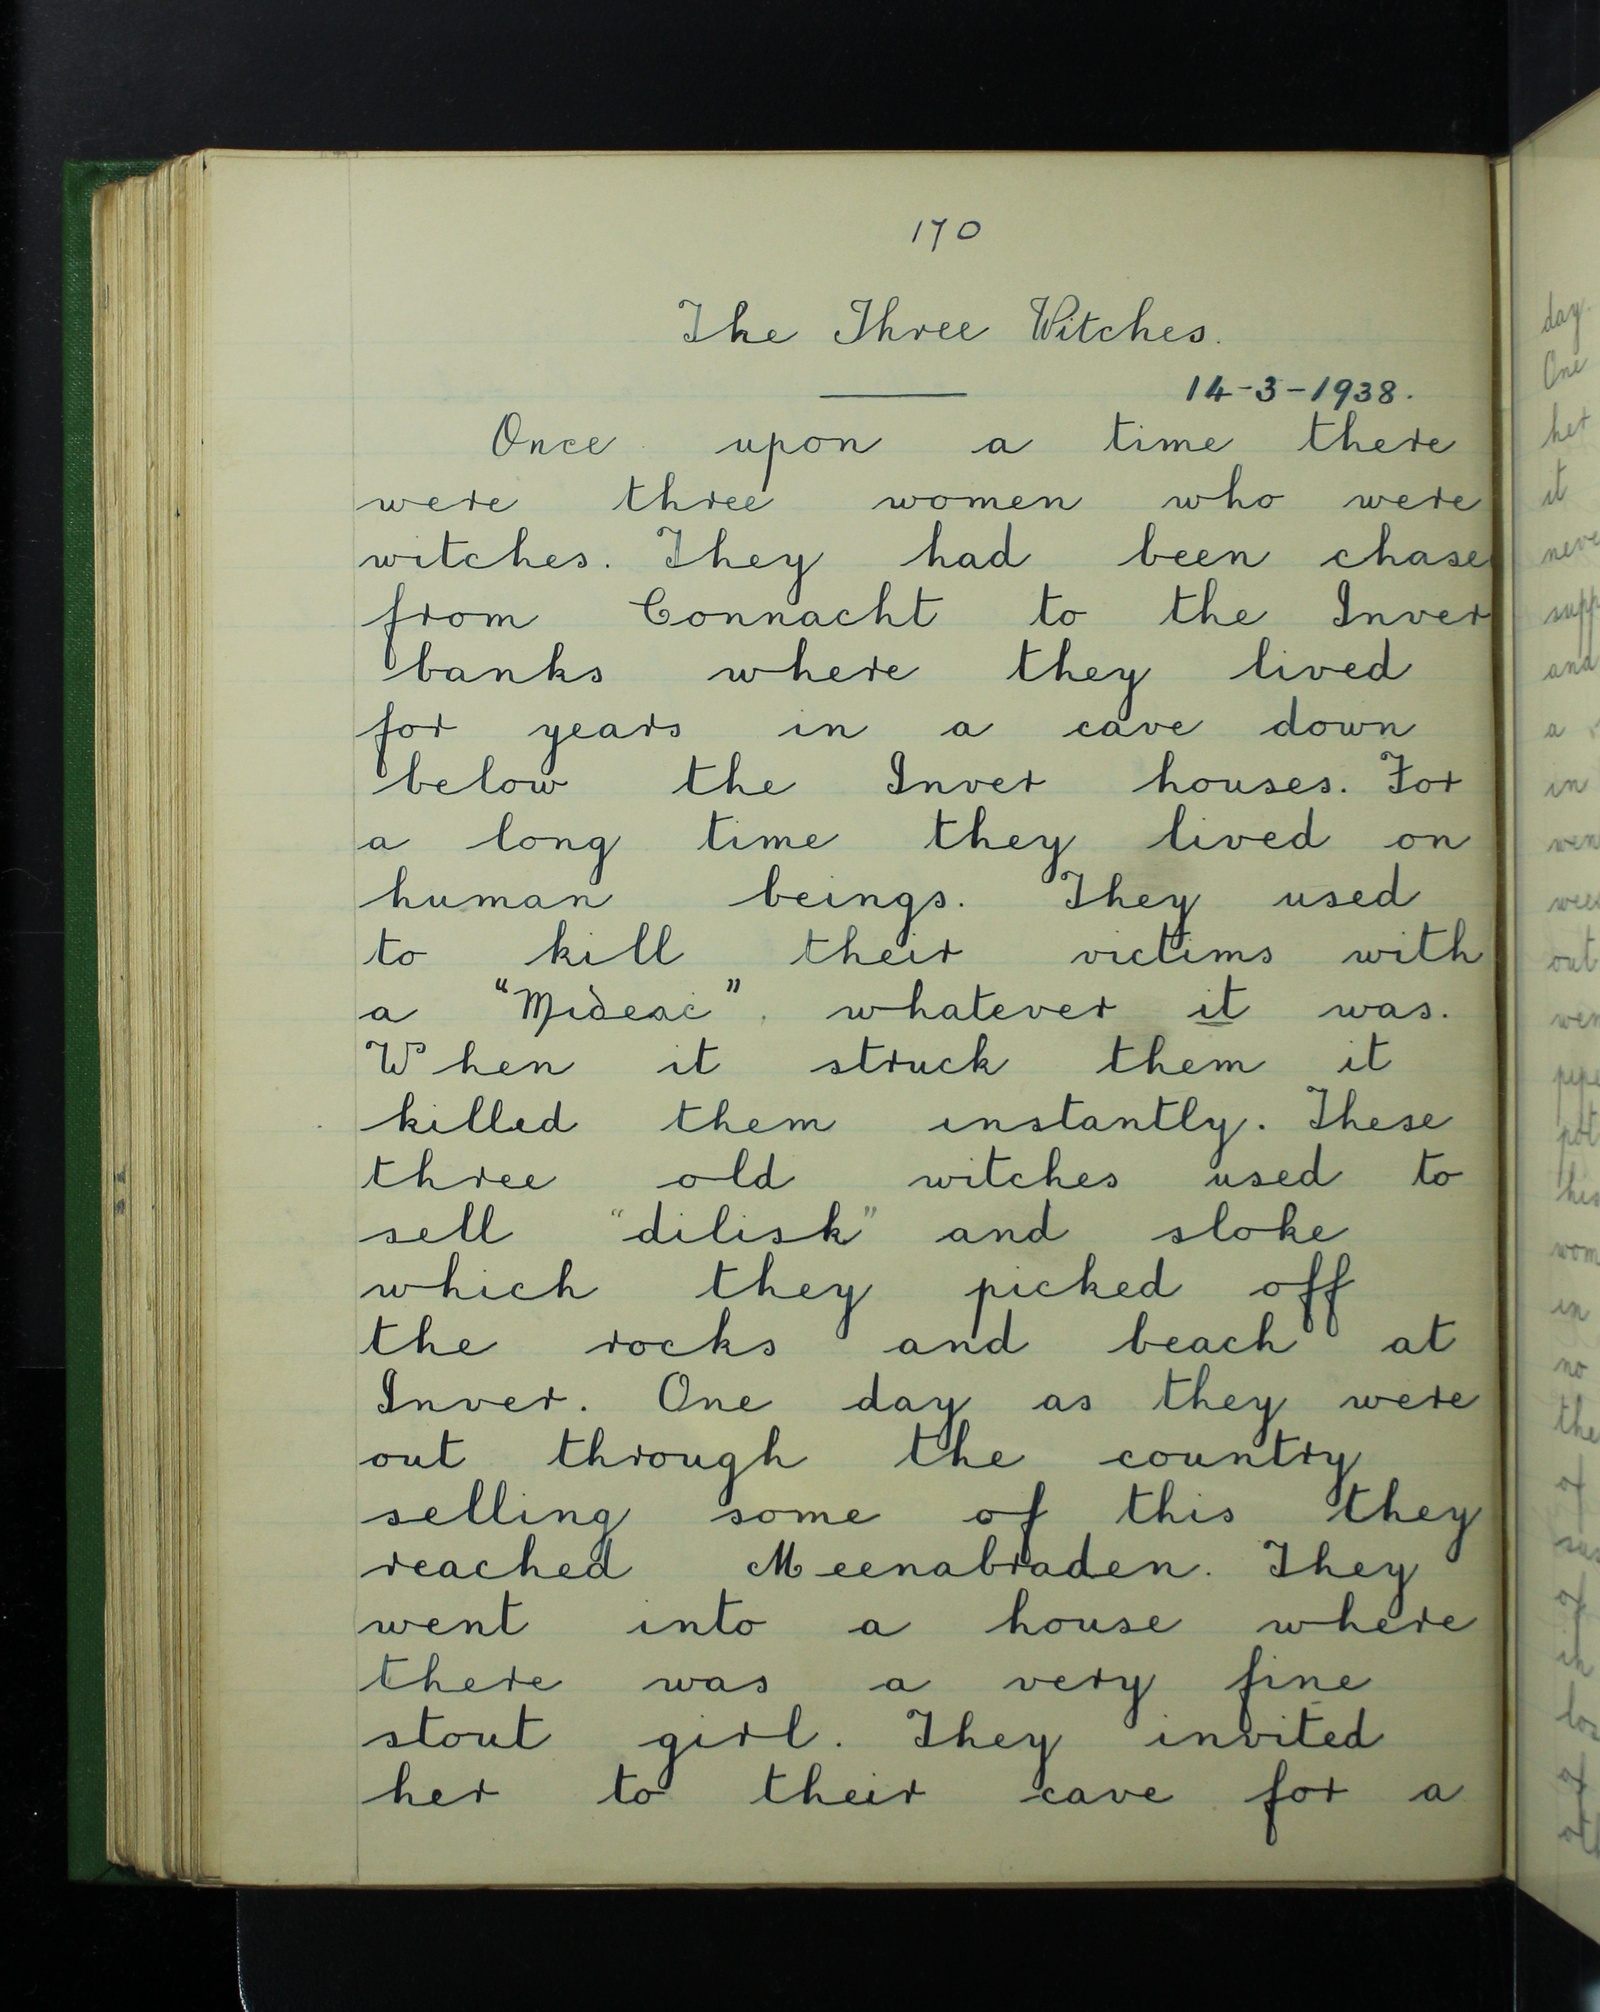 170
The Three Witches.
14-3-1938.
Once upon a time there
were three women who were
witches. They had been chase
from Connacht to the Inver
banks where they lived
for years in a cave down
below the Inver houses. For
a long time they lived on
human beings. They used
to kill their victims with
a "Miḋeaċ". whatever it was.
When it struck them it
killed them instantly. These
three old witches used to
sell "dilisk" and sloke
which they picked off
the rocks and beach at
Inver. One day as they were
out through the country
selling some of this they
reached Meenabraden. They
went into a house where
there was a very fine
stout girl. They invited
her to their cave for a
day.
One
her
it
a
in
out
his
in
no
the
of
of
in
of